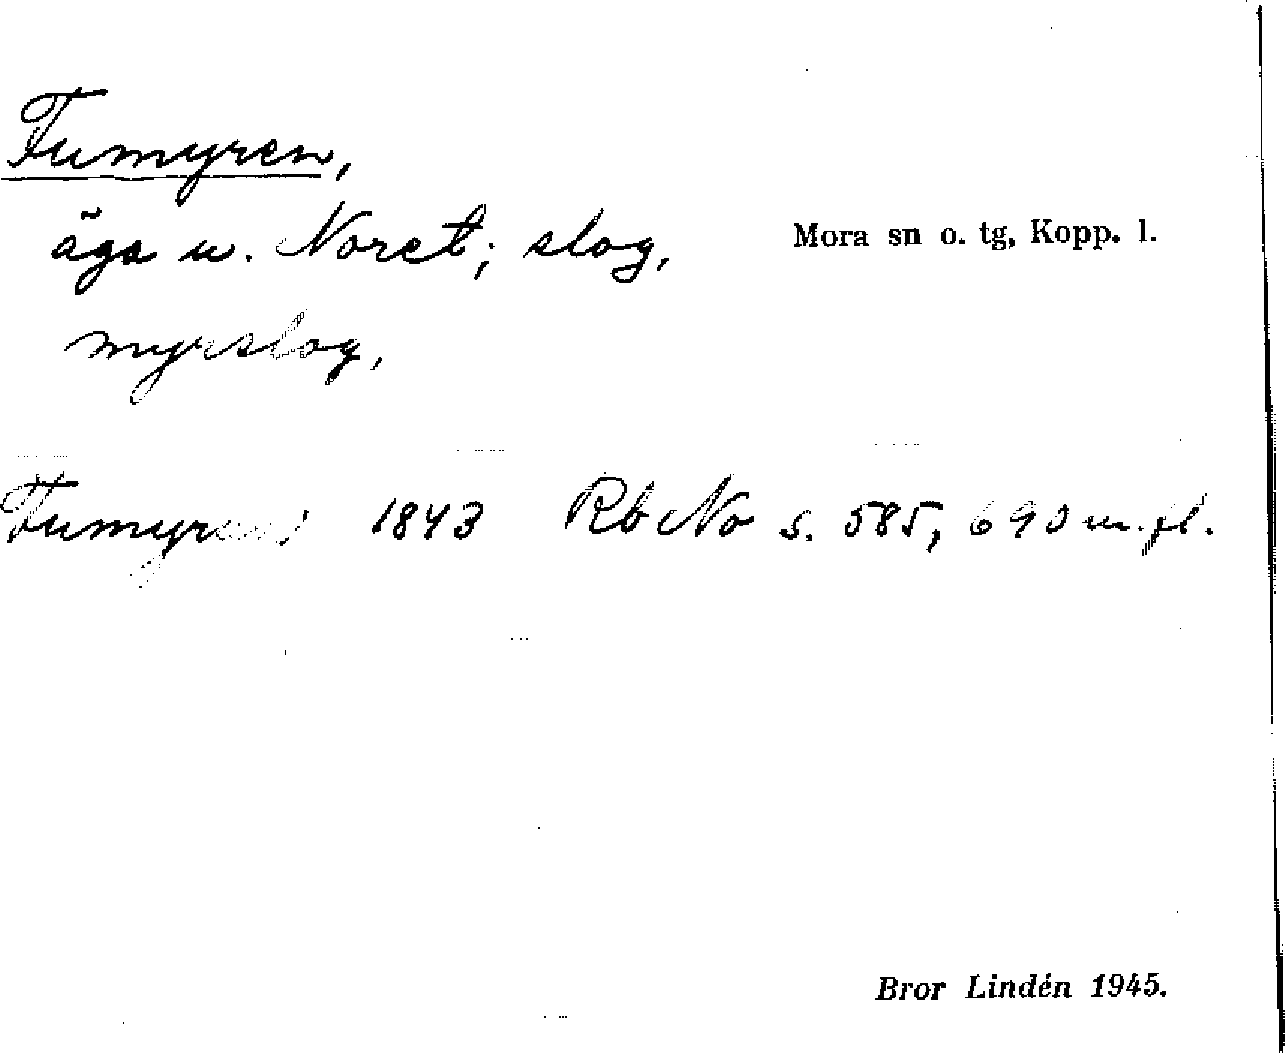 Fumyren,
äga u. Noret; slog,
Mora sn o. tg, Kopp. l.
myrslog,
Fumyren; 1843 Rb No s. 585, 690 m.fl.
Bror Lindén 1945.